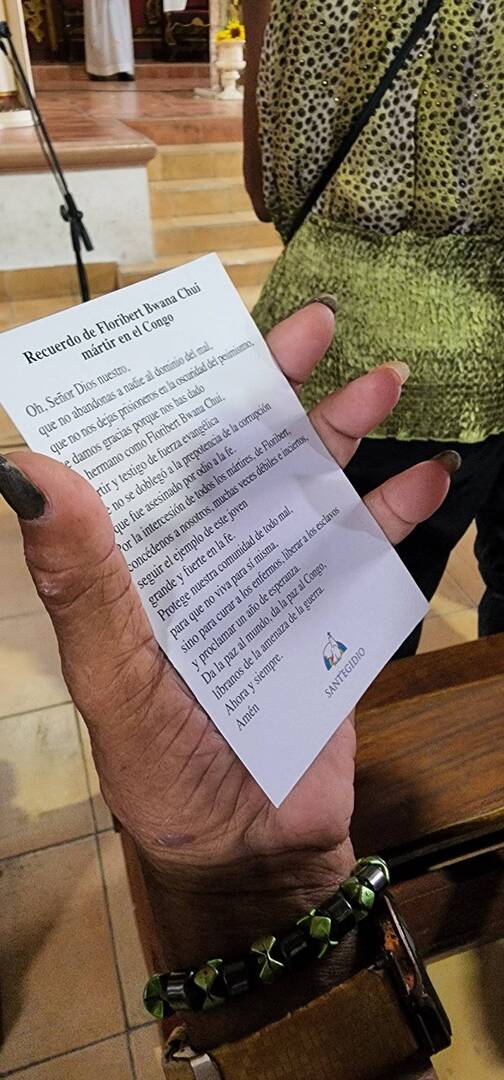 Recuerdo de Floribert Bwana Chui
mártir en el Congo
Oh, Señor Dios nuestro,
que no abandonas a nadie al dominio del mal,
que no nos dejas prisioneros en la oscuridad del pesimismo,
e damos gracias porque nos has dado
hermano como Floribert Bwana Chui,
rtir y testigo de fuerza evangélica
no se doblegó a la prepotencia de la corrupción
que fue asesinado por odio a la fe.
Por la intercesión de todos los mártires, de Floribert,
concédenos a nosotros, muchas veces débiles e inciertos,
seguir el ejemplo de este joven
grande y fuerte en la fe.
Protege nuestra comunidad de todo mal,
para que no viva para sí misma,
sino para curar a los enfermos, liberar a los esclavos
y proclamar un año de esperanza.
Da la paz al mundo, da la paz al Congo,
líbranos de la amenaza de la guerra.
Ahora y siempre.
Amén
SANT'EGIDIO